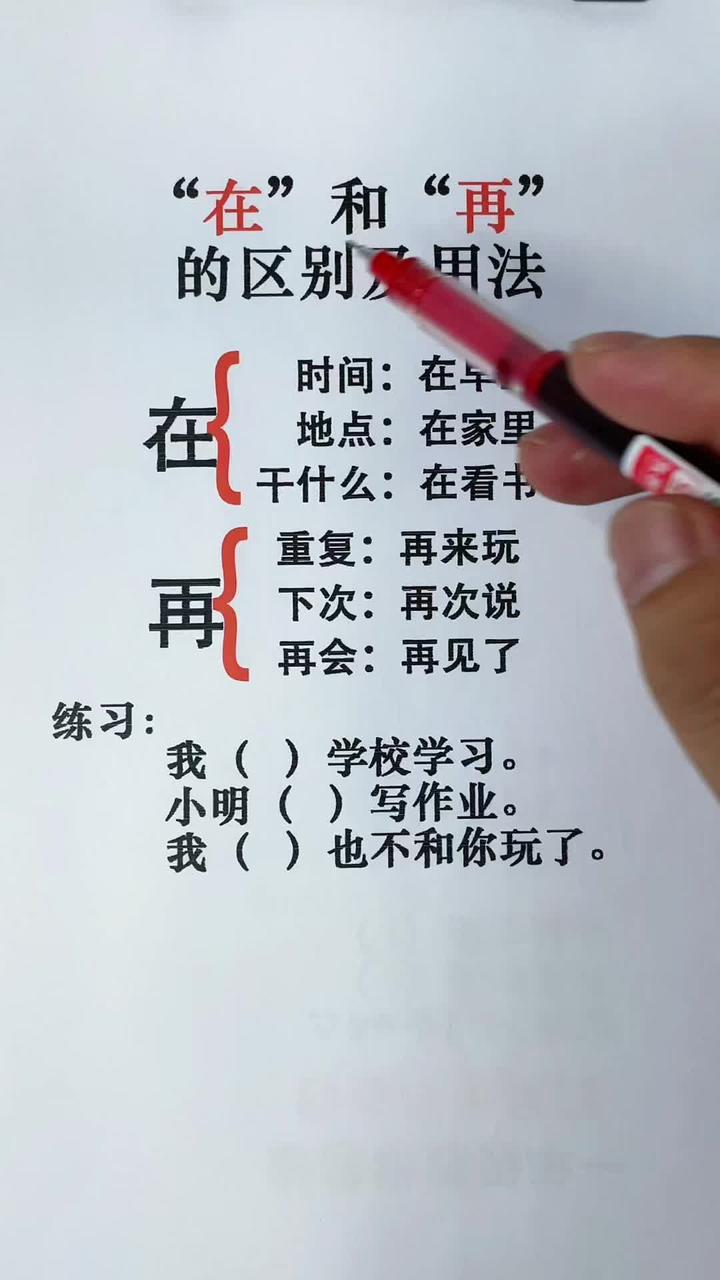 “在”和“再”
的区别及用法
在
时间：在早
地点：在家里
干什么：在看书
再
重复：再来玩
下次：再次说
再会：再见了
练习：
我（ ）学校学习。
小明（ ）写作业。
我（ ）也不和你玩了。